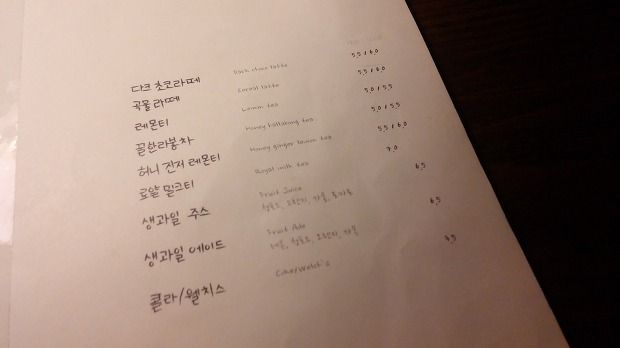 다크 초코라떼 Dark choco latte 5.5 / 6.0
곡물라떼 Cereal latte 5.5 / 6.0
레몬티 Lemon tea 5.0 / 5.5
꿀한라봉차 Honey hallabong tea 5.0 / 5.5
허니 진저 레몬티 Honey ginger lemon tea 5.5 / 6.0
로얄 밀크티 Royal milk tea 7.0
생과일 주스 Fruit Juice 6.5
청포도, 오렌지, 자몽, 토마토
생과일 에이드 Fruit Ade 6.5
레몬, 청포도, 오렌지, 자몽
콜라/웰치스 Coke/Welch's 4.5